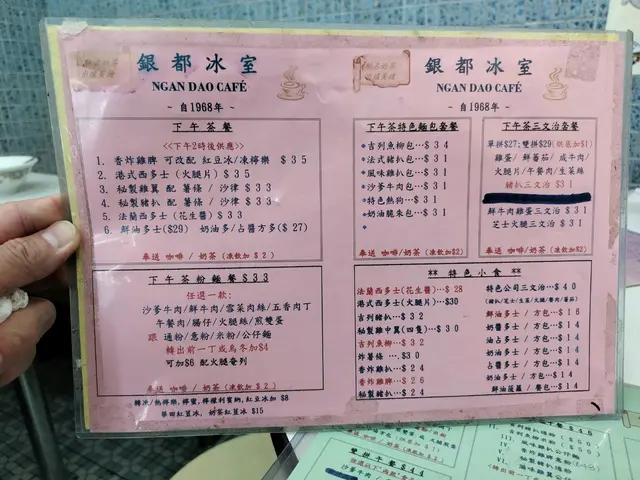 銀都冰室
NGAN DAO CAFÉ
~ 自1968年 ~
下午茶餐
<<下午2時後供應>>
1. 香炸雞脾 可改配 紅豆冰/凍檸樂 $35
2. 港式西多士(火腿片)$35
3. 秘製雞翼 配 薯條 / 沙律 $33
4. 秘製豬扒 配 薯條 / 沙律 $33
5. 法蘭西多士(花生醬) $33
6. 鮮油多士($29) 奶油多/占醬方多($27)
奉送 咖啡/奶茶(凍飲加$2)
下午茶粉麵餐$33
任選一款:
沙爹牛肉/鮮牛肉/雪菜肉絲/五香肉丁
午餐肉/腸仔/火腿絲/煎雙蛋
跟 通粉/意粉/米粉/公仔麵
轉出前一丁或烏冬加$4
可加$6 配火腿奄列
奉送 咖啡 / 奶茶(凍飲加$2)
轉凍/熱檸樂,檸蜜,檸樓利賓納,紅豆冰加 $8
單田紅荳冰, 奶茶紅荳冰 $15
銀都冰室
NGAN DAO CAFÉ
~ 自1968年 ~
下午茶特色麵包套餐
吉列魚柳包…$34
法式豬扒包…$31
風味雞扒包…$31
沙爹牛肉包…$31
特色熱狗…$31
奶油脆朱包…$31
奉送 咖啡/奶茶(凍飲加$2)
下午茶三文治套餐
單拼$27;雙拼$29(烘底加$1)
雞蛋/ 鮮蕃茄/ 咸牛肉/
火腿片/午餐肉/生菜絲
豬扒三文治 $31
鮮牛肉雞蛋三文治 $31
芝士火腿三文治 $31
奉送 咖啡/奶茶(凍飲加$2)
** 特色小食 **
法蘭西多士(花生醬)…$28
港式西多士(火腿片)…$30
吉列豬扒…$32
秘製雞中翼(四隻)…$30
吉列魚柳…$32
炸薯條…$30
香炸雞扒…$24
香炸雞脾…$26
秘製豬扒…$24
特色公司三文治…$40
(豬扒/芝士/生菜/火腿/餐肉/蕃茄)
鮮油多士 / 方包…$16
奶醬多士 / 方包…$14
油占多士 / 方包…$14
奶油多士 / 方包…$14
占醬多士 / 方包…$14
奶油多士 / 方包…$14
鮮油菠蘿 / 餐包…$14
雙拼午餐$44